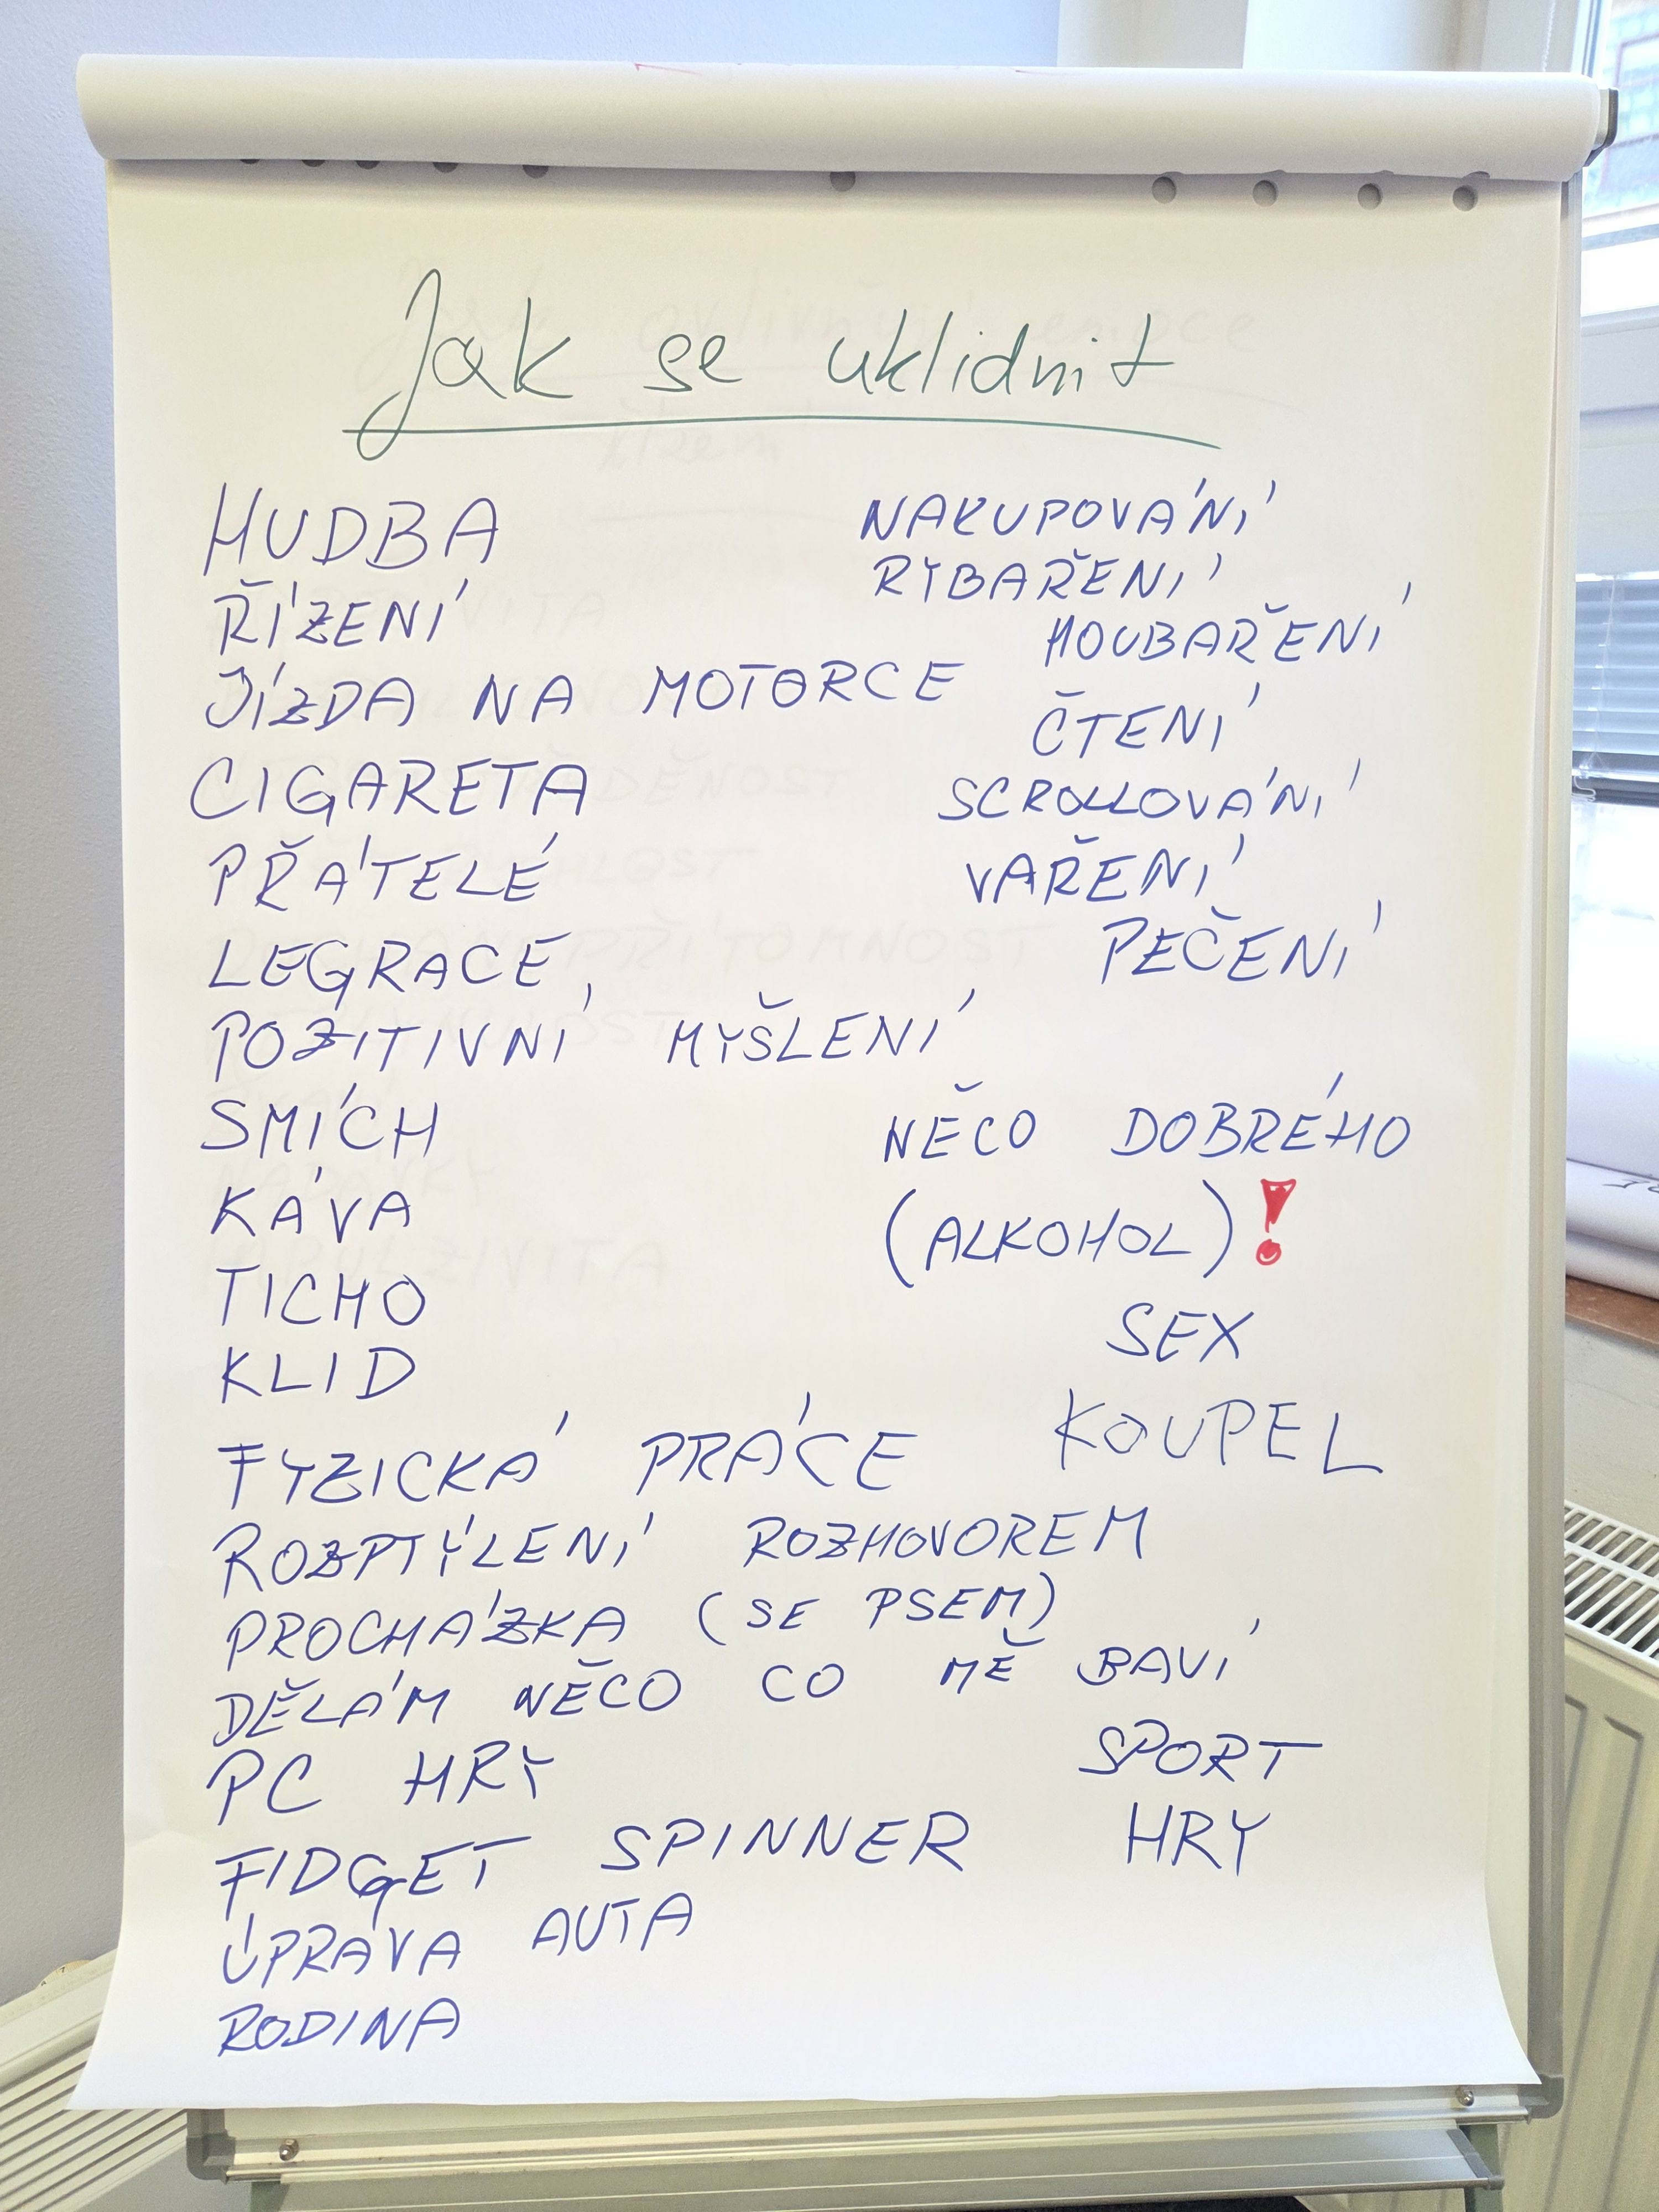 Jak se uklidnit
HUDBA
ŘÍZENÍ
JÍZDA NA MOTORCE
CIGARETA
PŘÁTELÉ
LEGRACE
POZITIVNÍ MYŠLENÍ
SMÍCH
KÁVA
TICHO
KLID
FYZICKÁ PRÁCE
ROZPTÝLENÍ ROZHOVOREM
PROCHÁZKA (SE PSEM)
DĚLÁM NĚCO CO MĚ BAVÍ
PC HRY
FIDGET SPINNER
ÚPRAVA AUTA
RODINA
NAKUPOVÁNÍ
RYBAŘENÍ
HOUBAŘENÍ
ČTENÍ
SCROLLOVÁNÍ
VAŘENÍ
PEČENÍ
NĚCO DOBRÉHO
(ALKOHOL)!
SEX
KOUPEL
SPORT
HRY